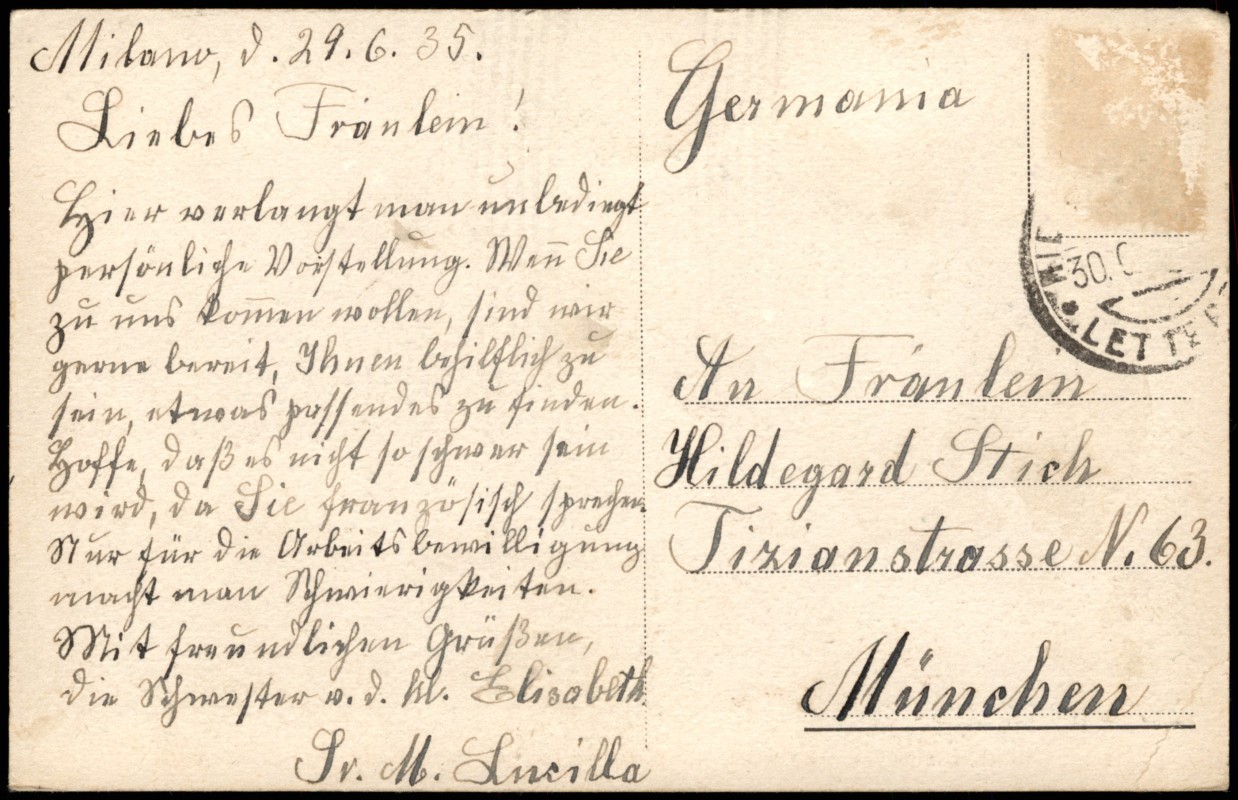 Milano, d. 29.6.35.
Liebes Fräulein!
Hier verlangt man unbedingt
persönliche Vorstellung. Wen̄ Sie
zu uns kom̄en wollen, sind wir
gerne bereit, Ihnen behilflich zu
sein, etwas passendes zu finden.
Hoffe, daß es nicht so schwer sein
wird, da Sie französisch sprechen.
Nur für die Arbeitsbewilligung
macht man Schwierigkeiten.
Mit freundlichen Grüßen,
die Schwester v. d. hl. Elisabeth
Sr. M. Lucilla
Germania
30.
LETTE
An Fräulein
Hildegard Stich
Tizianstrasse N. 63.
München